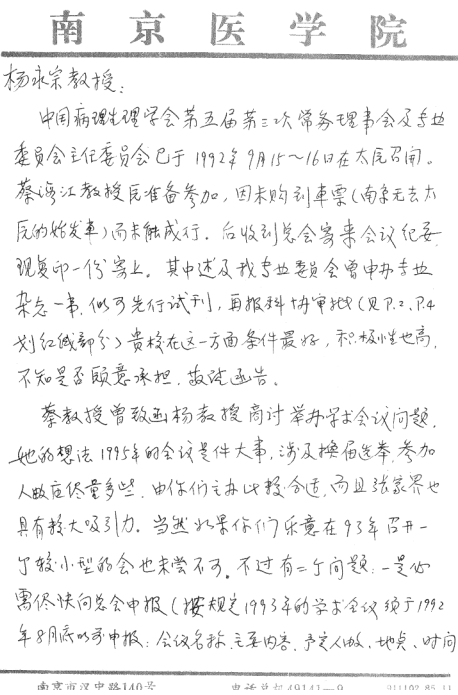 南京医学院
杨永宗教授：
中国病理生理学会第五届第三次常务理事会及专业
委员会主任委员会已于1992年9月15～16日在太原召开。
蔡海江教授原准备参加，因未购到车票（南京无去太
原的始发车）而未能成行。后收到总会寄来会议纪要
现复印一份寄上。其中述及我专业委员会曾申办专业
杂志一事，似可先行试刊，再报科协审批（见P.2、P.4
划红线部分）贵校在这一方面条件最好，积极性也高，
不知是否愿意承担，故请函告。
蔡教授曾致函杨教授商讨举办学术会议问题，
她的想法1995年的会议是件大事，涉及换届选举，参加
人数应尽量多些，由你们主办比较合适，而且张家界也
具有较大吸引力。当然如果你们乐意在93年召开一
个较小型的会也未尝不可。不过有二个问题：一是必
需尽快向总会申报（按规定1993年的学术会议须于1992
年8月底以前申报：会议名称、主要内容、予定人数、地点、时间
南京市汉中路140号 电话总机49141—9